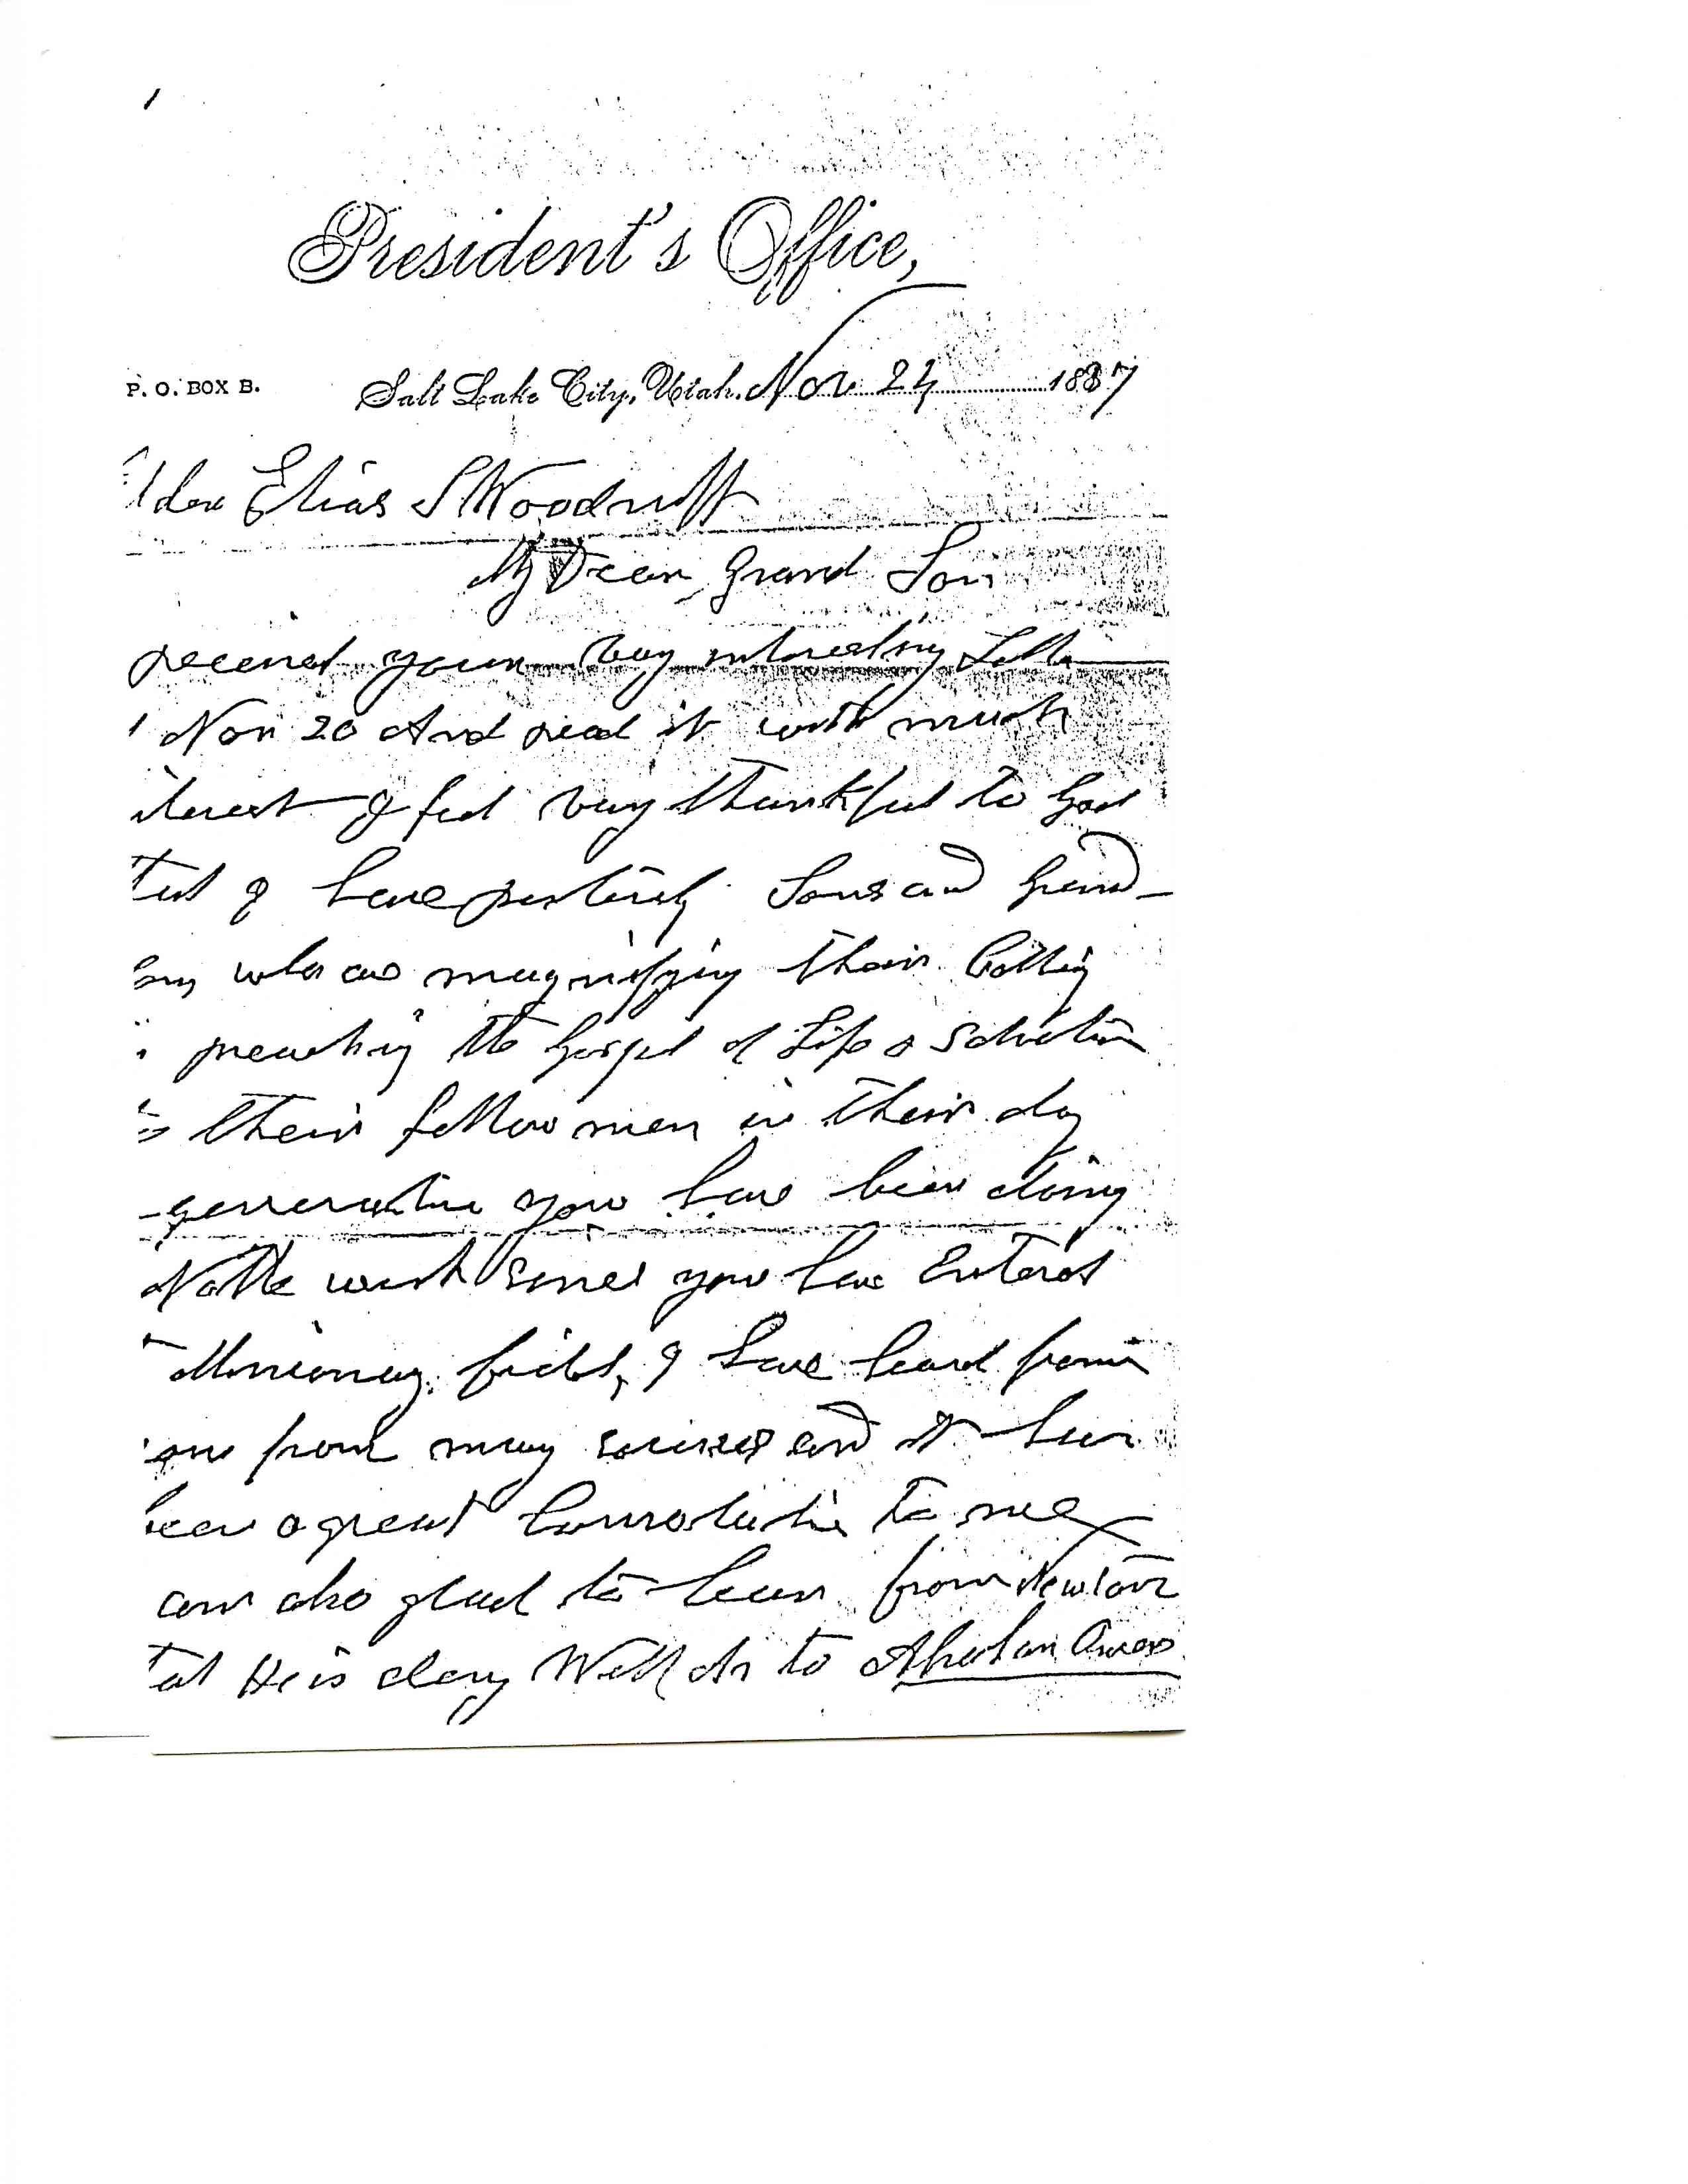 1
President's Office,
P. O. BOX B. Salt Lake City, Utah. Nov 24 1887
lder Elias S Woodruff
My Dear Grand Son
received your very interesting Letter
Nov 20 And read it with much
terest I feel very thankful to God
that I have posterity Sons and Grand-
sons who are magnifying their Calling
preaching the Gospel of Life & Salvation
to their fellow men in their day
generation you have been doing
Noble work since you have Entered
Missionary field, I have heard from
you from many sources and it has
been a great Consolation to me
am also glad to hear from Newton
that He is doing Well also to Abraham Owen